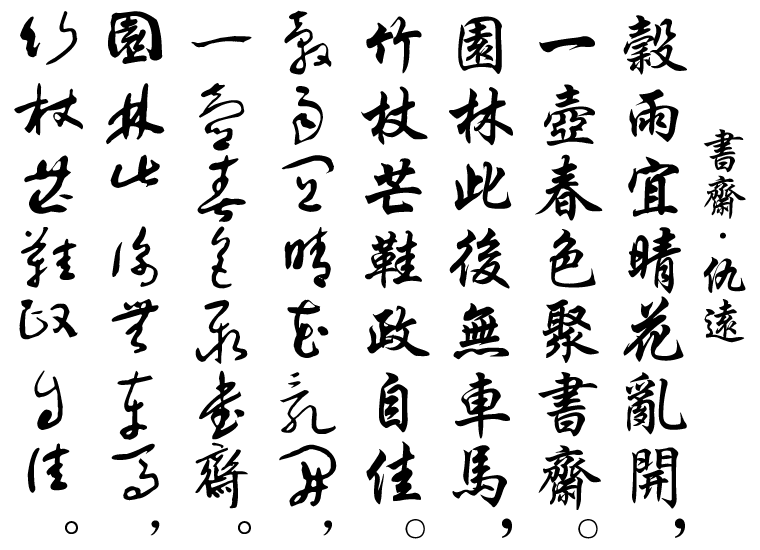 書齋·仇遠
穀雨宜晴花亂開，
一壺春色聚書齋。
園林此後無車馬，
竹杖芒鞋政自佳。
穀雨宜晴花亂開，
一壺春色聚書齋。
園林此後無車馬，
竹杖芒鞋政自佳。